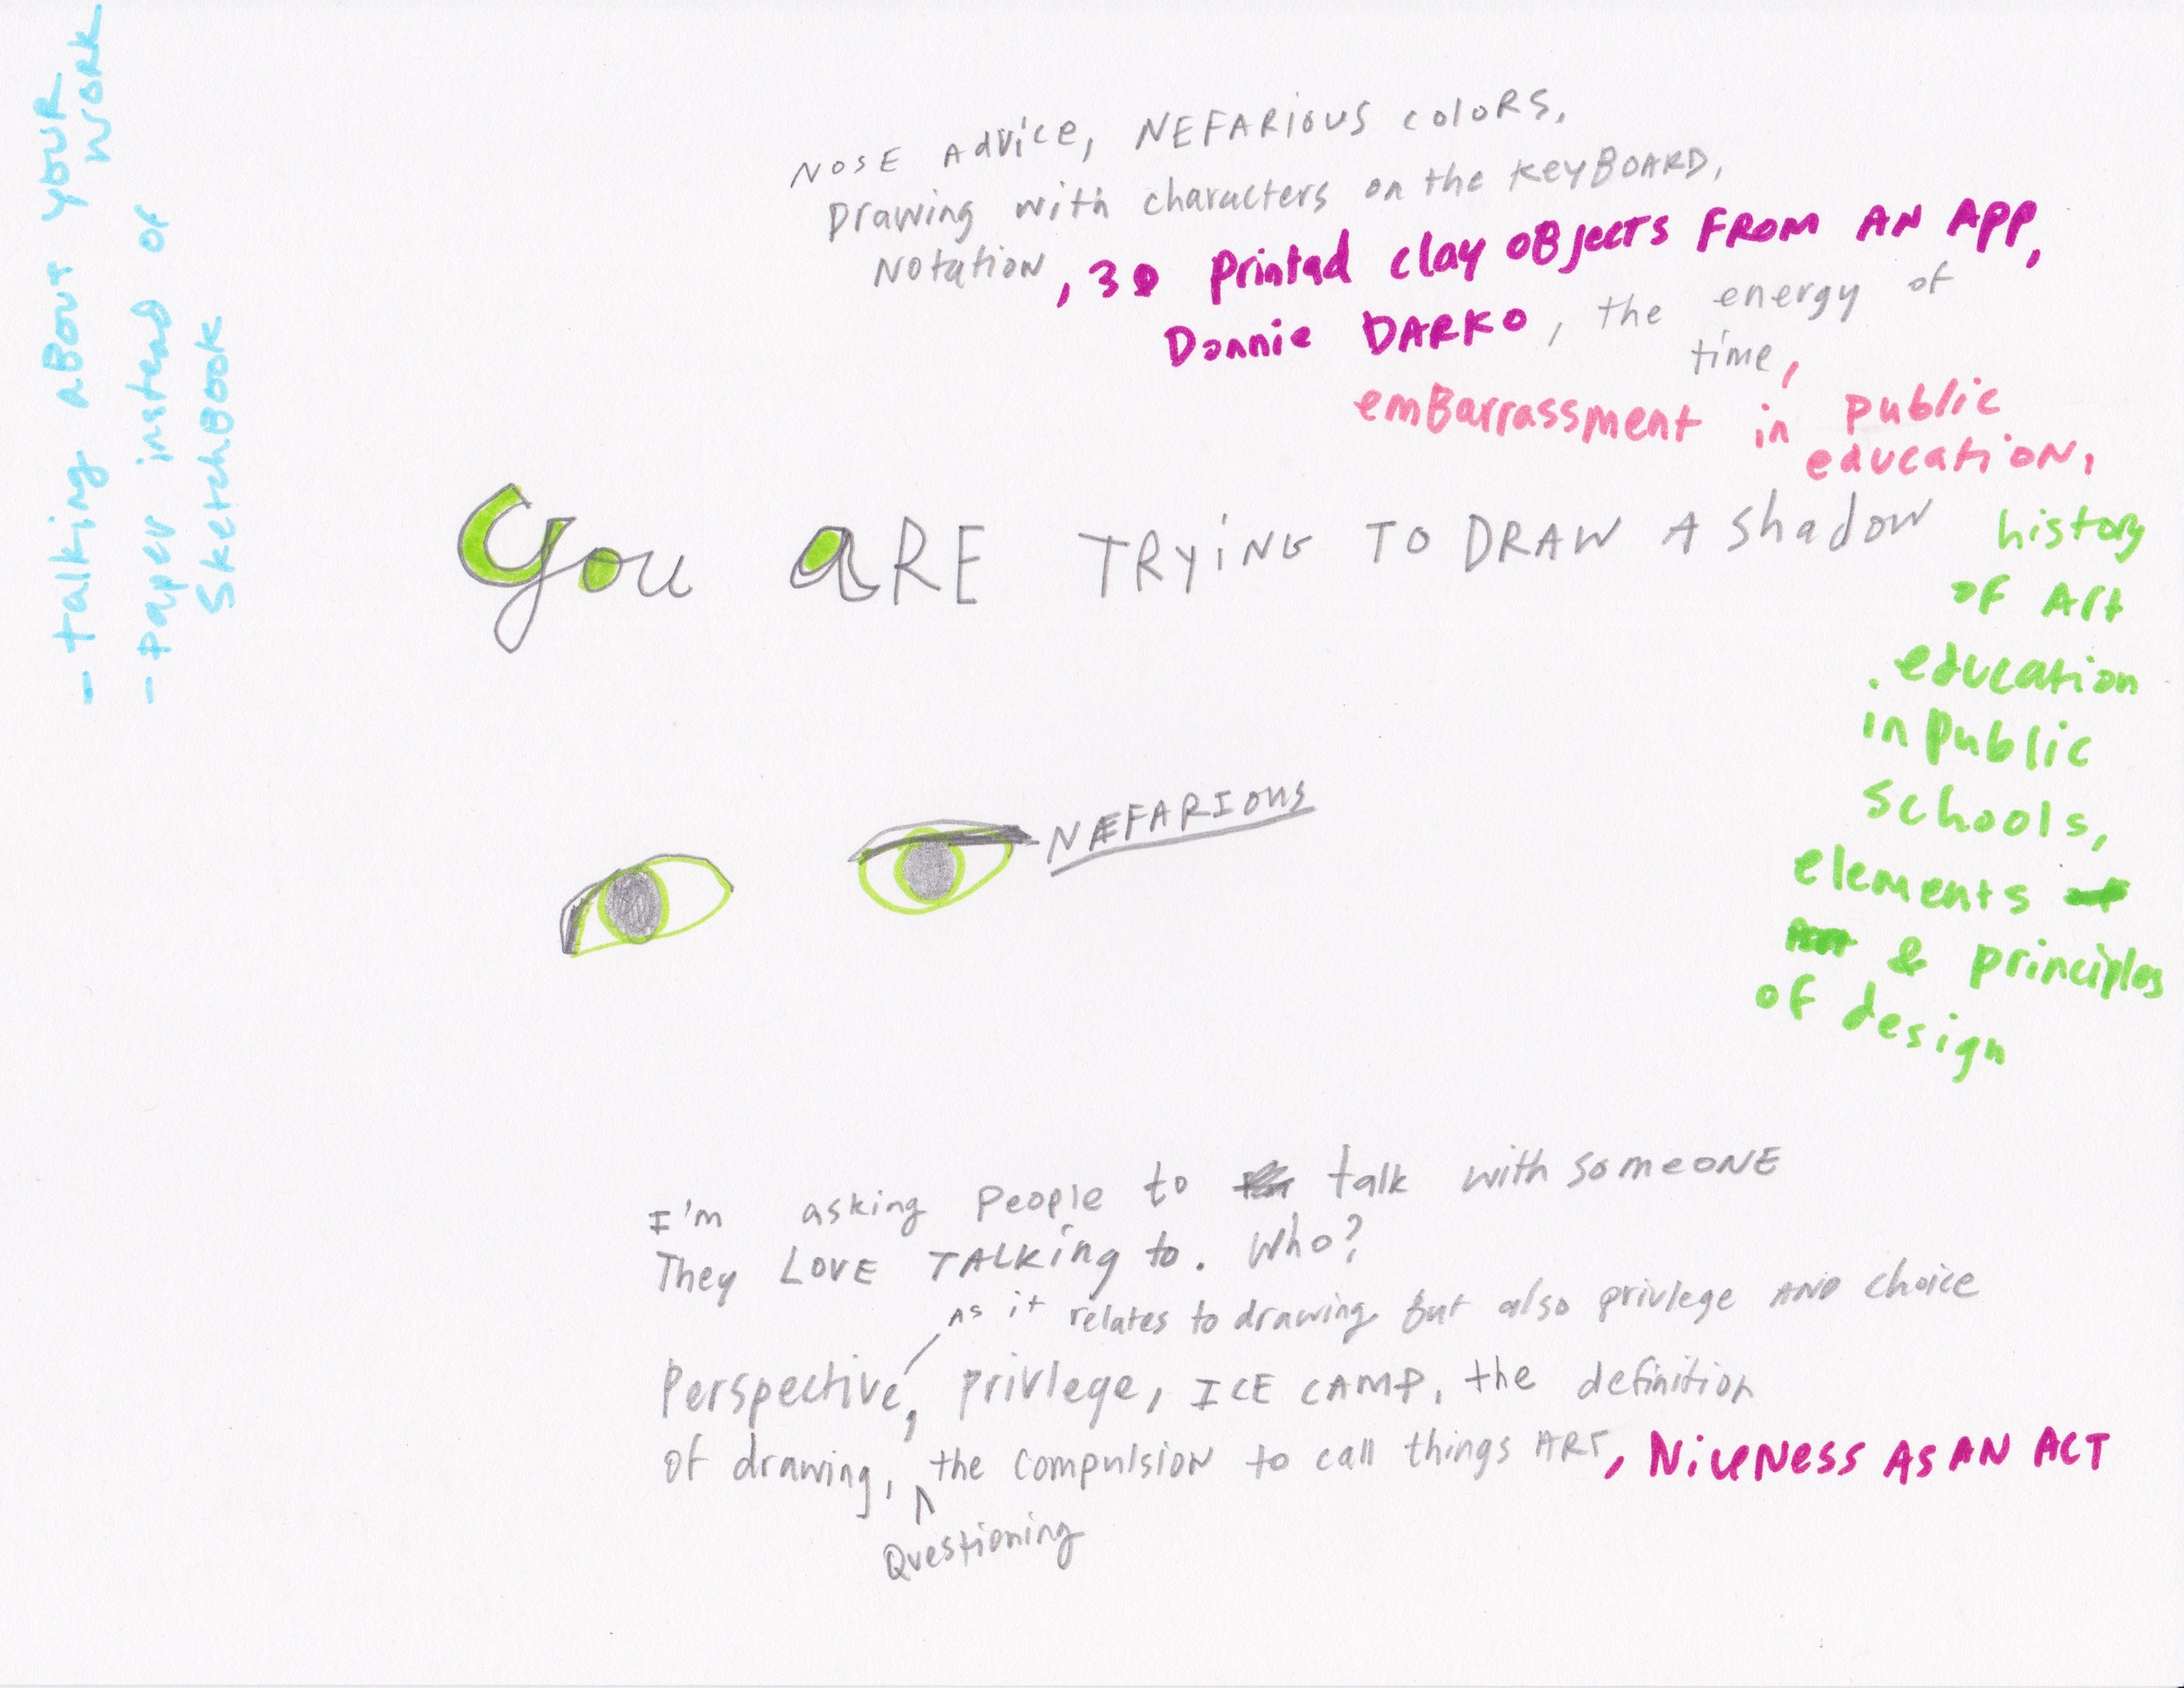 - talking aBout youR
work
- paper instead of
SketchBook
NOSE AdVice, NEFARIOUS coloRS,
Drawing with characters on the KeyBOARD,
Notation, 3D Printed clay OBjects FROM AN APP,
Donnie DARKO, the energy of
time,
emBarrassment in public
education,
You aRE TRyiNG TO DRAW A Shadow
history
of Art
education
in public
Schools,
elements
& principles
of design
NEFARIOUS
I'm asking People to talk with SomeONE
They LOVE TALKing to. Who?
As it relates to drawing but also privlege AND choice
Perspective, privlege, ICE CAMP, the definition
of drawing, the compulsion to call things ART, NiceNess AS AN ACT
Questioning